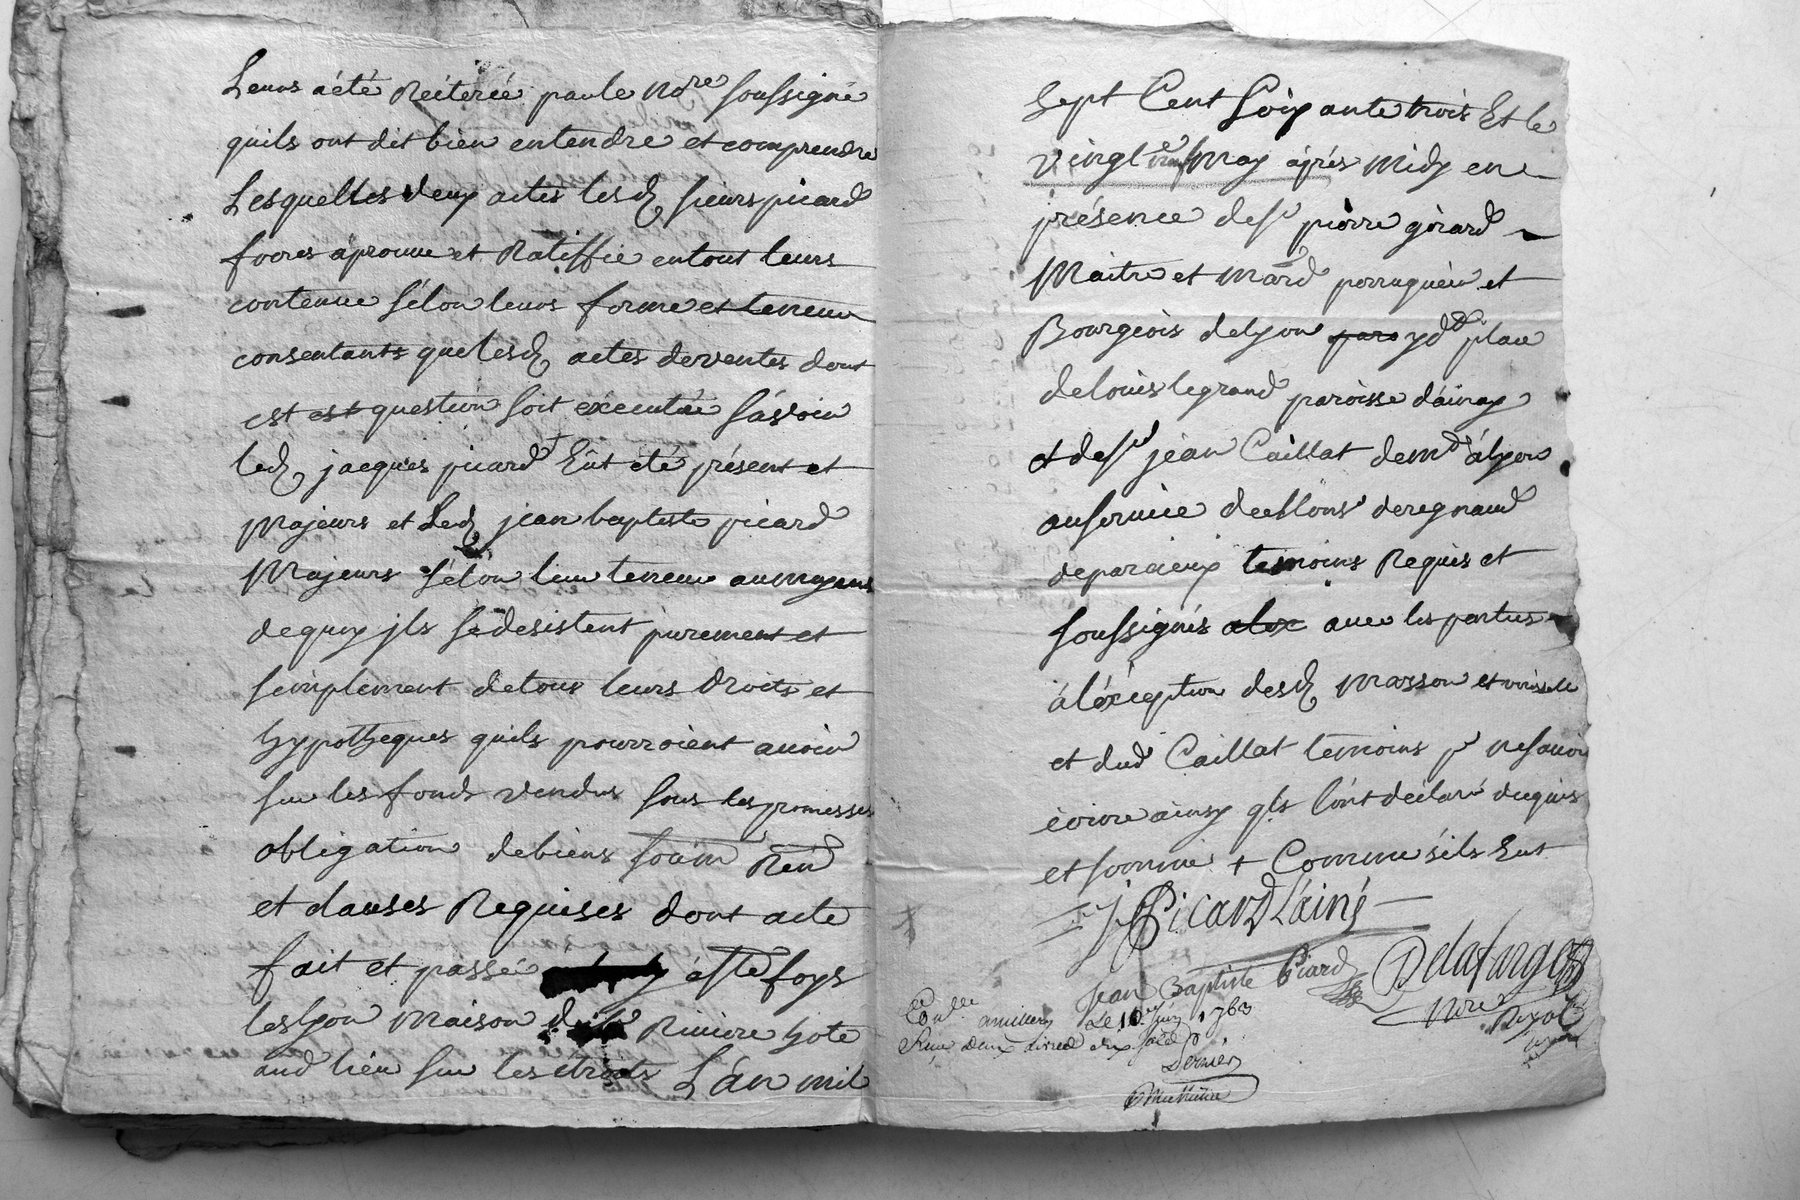 Leurs a été Réiterée par le No.re soussigné
quils ont dit bien entendre et comprendre
Lesquelles deux actes lesd. sieurs picard
freres aprouve et Ratiffie entout leurs
contenue sélon leurs forme et teneur
consentants que lesd. actes de ventes dont
est est question soit exécutée sávoir
led. jacques picard Eut été présent et
Majeurs et Led. jean baptiste picard
Majeurs sélon leur teneur aumoyens
dequoy jls se desistent purement et
simplement detous leurs Droits et
hypotheques quils pourroient avoir
sur les fonds vendus sous les promesses
obligation debiens soum Ren
et clauses Requises dont acte
fait et passé á Ste foys
les Lyon maison Riviere hote
aud lieu sur les étroits L'án mil
Sept Cent Soixante trois Et le
vingt neuf may áprés Midy en
présence de sr pierre girard
Maitre et Mard perruquier et
Bourgeois de Lyon par yd plase
de louis legrand paroisse d'ainay
et de sr jéan Caillat dem.t á lyon
au service de de regnaud
deparcieux temoins Requis et
soussignés alex avec les parties
á l'éxception desd. Masson et
et dud Caillat temoins pr ne savoir
écrire ainsy qls l'ont déclaré dequis
et sommé + Comme sils Eut
J Picard L'ainé
Jean Baptiste Picard
Delafarge
Nore Royal
Con.lle a le 10 juin 1763
Reçu deux livres dix sols
Dernier